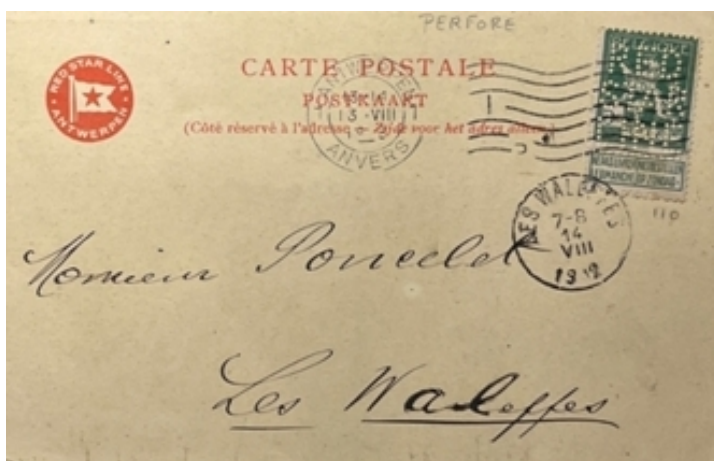 PERFORE
RED STAR LINE
ANTWERPEN
CARTE POSTALE
POSTKAART
(Côté réservé à l'adresse — Zijde voor het adres alleen)
ANTWERPEN
13 -VIII
ANVERS
110
LES WALEFFES
7-8
14
VIII
1912
Monsieur Poncelet
Les Waleffes